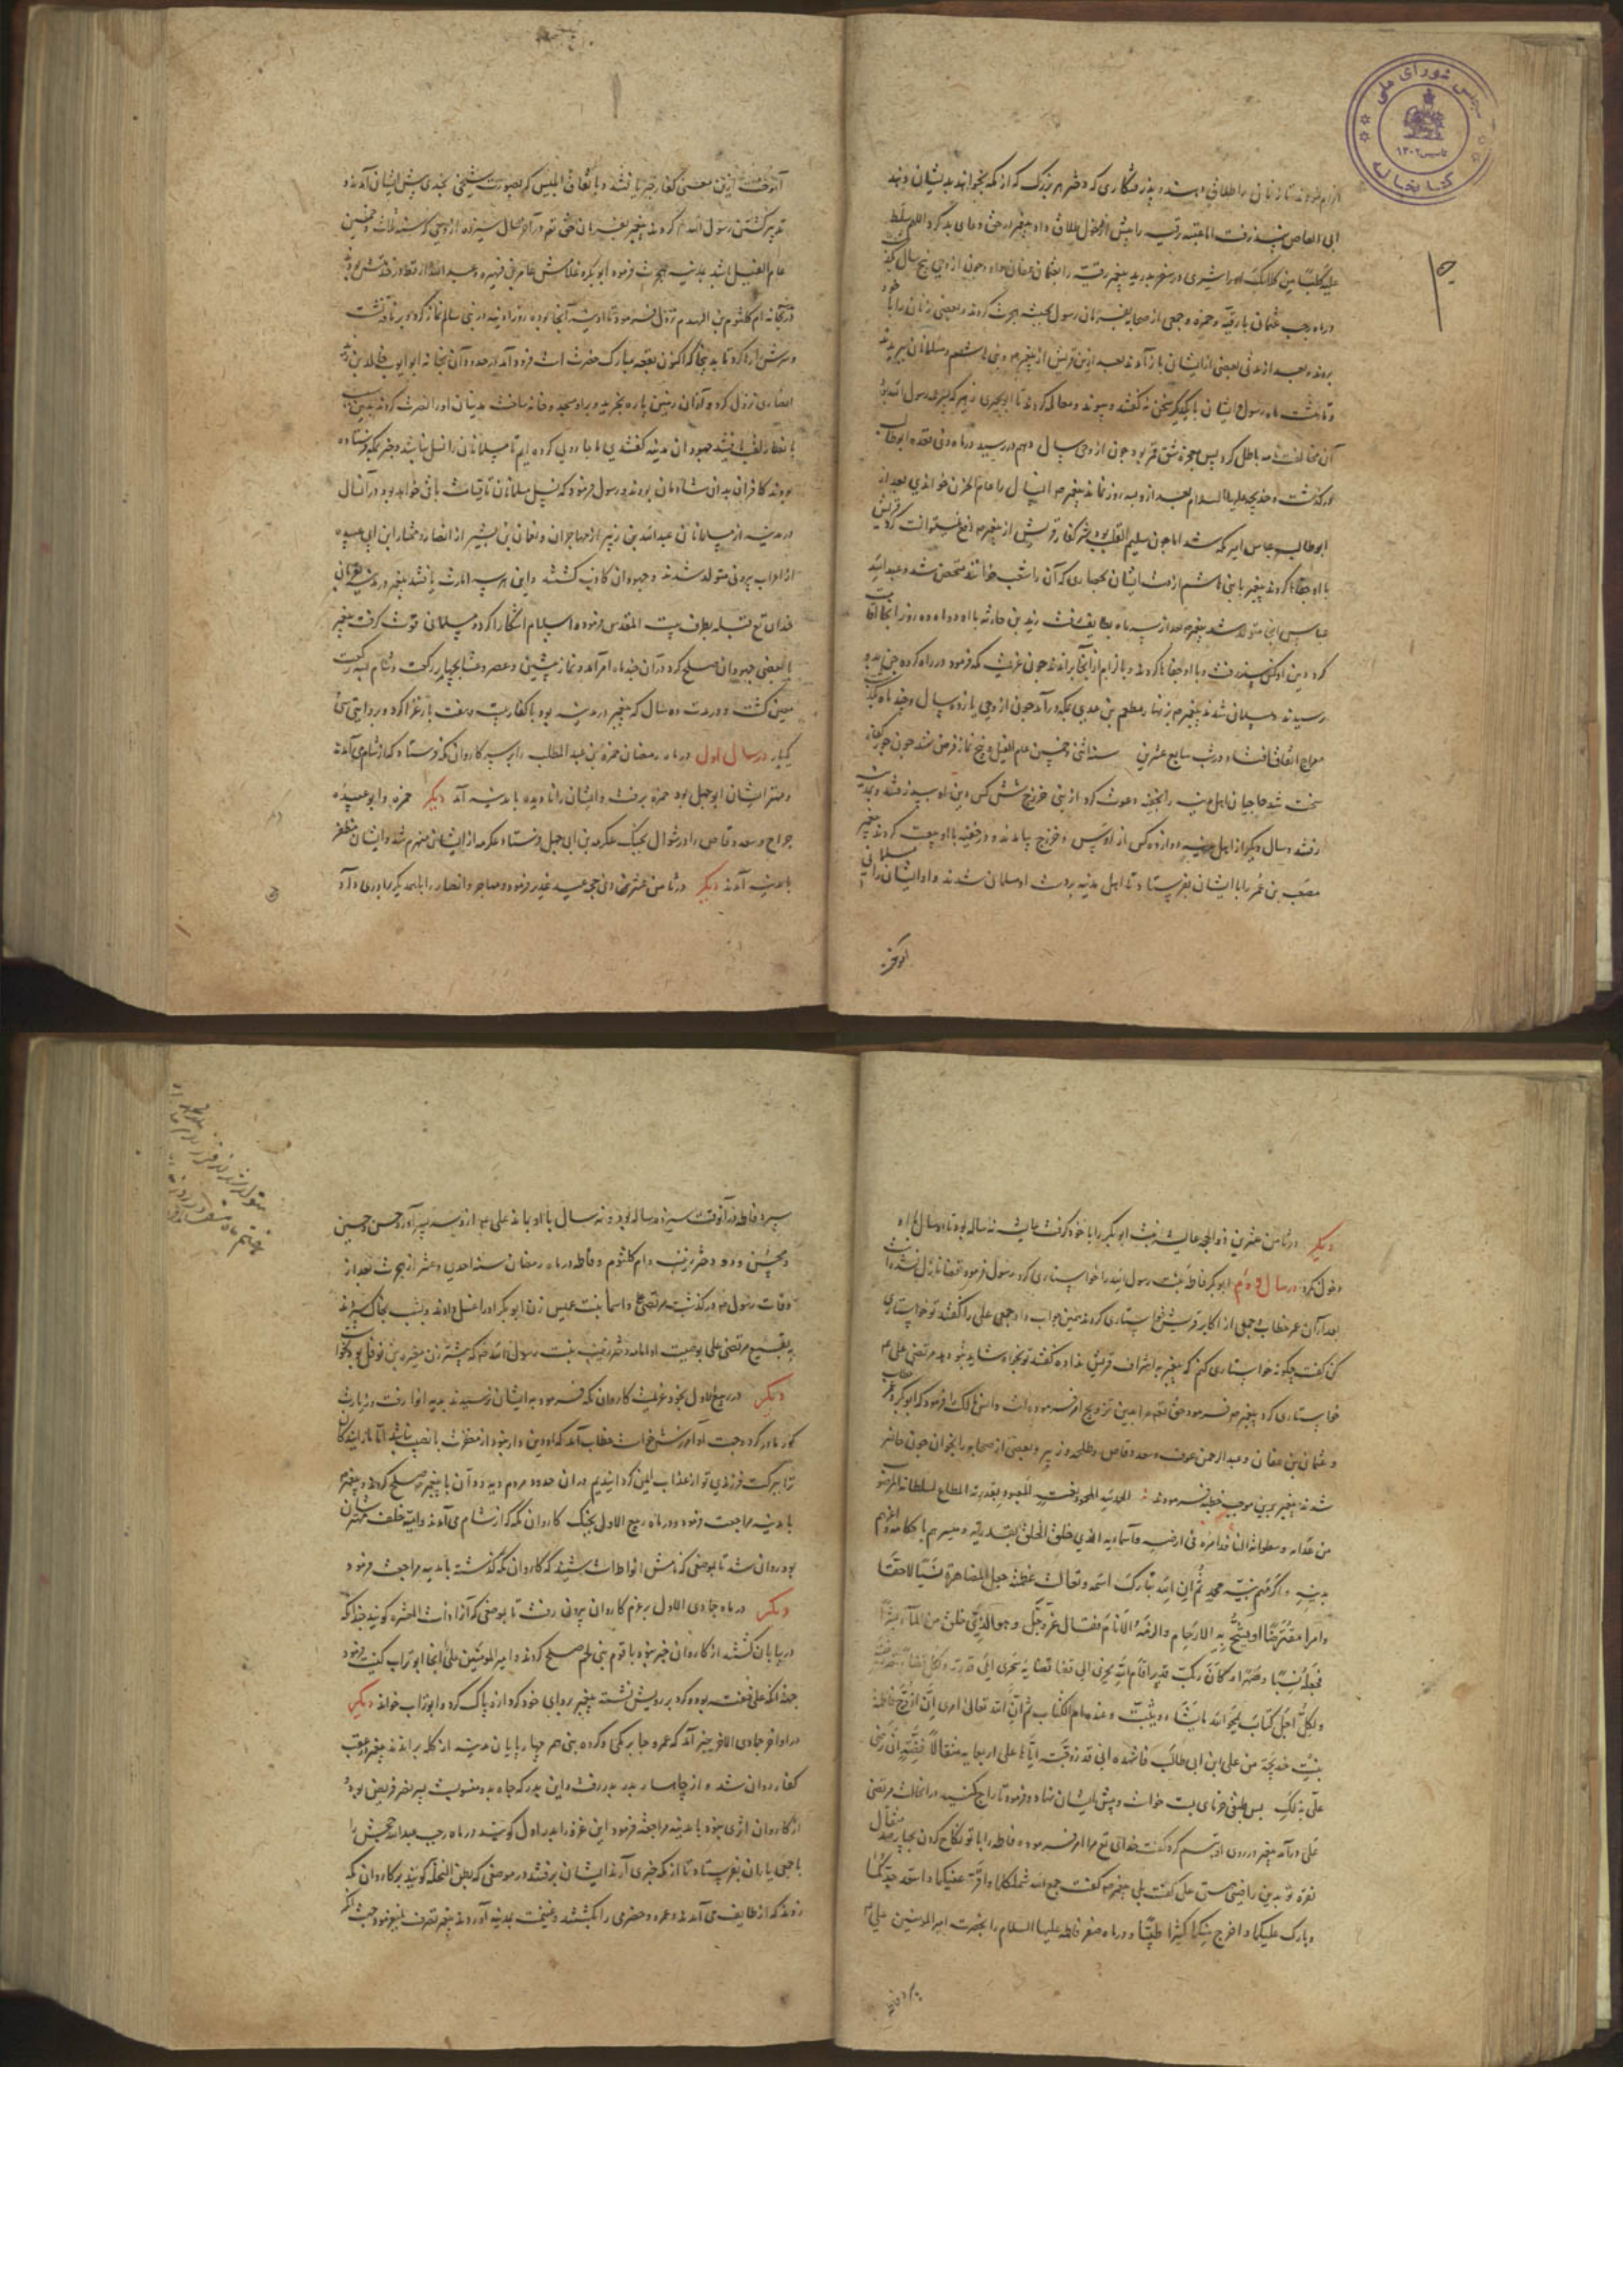 مجلس شورای ملی
تاسیس ۱۳۰۲
کتابخانه
الزام نمودند تا زنان را طلاق دهند و پذرفتگاری که دختر هر بزرگ که از مکه بخواهند بدیشان دهند
ابی العاص نپذرفت اما عتبه رقیه را پیش از دخول طلاق داد پیغمبر در حق او دعای بد کرد و اللهم سلط
علیه کلبا من کلابک او را شیری در سفر بدرید پیغمبر رقیه را بعثمان عفان داد و چون از وحی پنج سال بگذشت
در ماه رجب عثمان با رقیه و حمزه و جمعی از صحابه بفرمان رسول بحبشه هجرت کردند و بعضی زنان را با خود
بردند و بعد از مدتی بعضی از ایشان باز آمدند بعد ازین قریش از پیغمبر و بنی هاشم و مسلمانان ببریدند
و تا هشت ماه رسول و ایشان با یکدیگر سخن نه گفتند و پیوند و معامله کردند تا ابوالبختری
آن مخالفت نامه باطل کرد پس معجزه شق قمر بود چون از وحی سال دهم در رسید در ماه ذی قعده ابوطالب
درگذشت و خدیجه علیها السلام بعد ازو بسه روز نماند پیغمبر آن سال را عام الحزن خواندی بعد از
ابوطالب عباس امیر مکه شد اما چون سلیم القلب بود شر کفار قریش از پیغمبر دفع نمیتوانست کرد قریش
با او جفاها کردند پیغمبر با بنی هاشم از دست ایشان بحصاری که آن را شعب خوانند متحصن شد و عبدالله
عباس آنجا متولد شد پیغمبر بعد از سه ماه بطایف رفت زید بن حارثه با او و ده روز آنجا اقامت
کرد دین او کس نپذرفت و با او جفاها کردند و بآزارم از آنجا براندند چون عزیمت مکه فرمود در راه گروه جن بدو
رسیدند و مسلمان شدند پیغمبر بزنهار مطعم بن عدی بمکه درآمد چون از وحی یازده سال و چند ماه بگذشت
معراج اتفاق افتاد و در شب سابع عشرین سنه اثنی و خمسین عام الفیل و پنج نماز فرض شد چون جور کفار
سخت شد حاجیان اهل مدینه را بخفیه دعوت کرد از بنی خزرج شش کس دین او بپذرفتند و بمدینه
رفتند و سال دیگر از اهل مدینه دوازده کس از اوس و خزرج بیامدند و در خفیه با او بیعت کردند پیغمبر
مصعب بن عمر را با ایشان بفرستاد تا اهل مدینه بدست او مسلمان شدند و او ایشان را مسلمانی
آموخت ازین معنی کفار خبر یافتند و باتفاق ابلیس که بصورت شیخ نجدی پیش ایشان آمد
تدبیر کشتن رسول الله کردند پیغمبر بفرمان حق تع در آخر سال سیزده از وحی که سنه ثلاث و خمسین
عام الفیل باشد بمدینه هجرت فرمود ابوبکر و غلامش عامر بن فهیره و عبدالله
در خانه ام کلثوم بن الهدم نزول فرمود
و سرش رها کرد تا بدینجا که اکنون بقعه مبارک حضرت است فرود آمد از حدود آن بخانه ابو ایوب خالد بن زید
انصاری نزول کرد و از آن زمین پاره بخرید و برو مسجد و خانه ساخت مدنیان او را نصرت کردند
بانصار لقب یافتند جهودان مدینه گفتندی ما جادویی کرده ایم تا مسلمانان را نسل نباشد و خبر بمکه فرستاده
بودند کافران بدان شادمان بودند رسول فرمود که نسل مسلمانان تا قیامت باقی خواهد بود در آن سال
در مدینه از مسلمانان عبدالله بن زبیر از مهاجران و نعمان بن بشیر از انصار و مختار ابن ابی عبیده
از اعراب بیرونی متولد شدند و جهودان کاذب گشتند و این هر سه امارت یافتند پیغمبر در مدینه بفرمان
خدای تع قبله بطرف بیت المقدس فرمود و اسلام آشکارا کرد و مسلمانی قوت گرفت پیغمبر
با بعضی جهودان صلح کرد در آن چند ماه امر آمد و نماز پیشین و عصر و عشا بچهار رکعت و شام بسه رکعت
معین گشت و در مدت ده سال که پیغمبر در مدینه بود با کفار بیست و هفت بار غزا کرد و بروایتی سی و
یکبار در سال اول در ماه رمضان حمزه بن عبدالمطلب را بر سر کاروان مکه فرستاد که از شام می آمدند
و مهتر ایشان ابوجهل بود حمزه برفت و ایشان را نادیده با مدینه آمد دیگر حمزه و ابو عبیده
جراح و سعد وقاص را در شوال بجنگ عکرمه بن ابی جهل فرستاد عکرمه از ایشان منهزم شد و ایشان مظفر
با مدینه آمدند دیگر در ثامن عشرین ذی حجه عید غدیر فرمود و مهاجر و انصار را با همدیگر برادری داد
دیگر در ثامن عشرین ذو الحجه عایشه بنت ابوبکر را با خود گرفت عایشه نه ساله بود تا دو سال با او
دخول نکرد در سال دوم ابوبکر فاطمه بنت رسول الله را خواستاری کرد رسول فرمود قضا نازل نشده است
بعد از آن عمر خطاب و جمعی از اکابر قریش خواستاری کردند همین جواب داد جمعی علی را گفتند تو خواستاری
کن گفت چگونه خواستاری کنم که پیغمبر باشراف قریش نداده گفتند تو بخواه شاید بتو دهد مرتضی علی
خواستاری کرد پیغمبر فرمود حق تعالی مرا بدین تزویج امر فرموده است و انس مالک را فرمود که ابوبکر و عمر خطاب
و عثمان بن عفان و عبدالرحمن عوف و سعد وقاص و طلحه و زبیر و بعضی از صحابه را بخوان چون حاضر
شدند پیغمبر برین موجب خطبه فرمودند الحمد لله المحمود بنعمته المعبود بقدرته المطاع لسلطانه المرهوب
من عذابه و سطواته النافذ امره فی ارضه و سمائه الذی خلق الخلق بقدرته و میزهم باحکامه و اعزهم
بدینه و اکرمهم بنبیه محمد ثم ان الله تبارک اسمه و تعالت عظمته جعل المصاهرة نسبا لاحقا
و امرا مفترضا اوشج به الارحام و الزمه الانام فقال عز و جل و هو الذی خلق من الماء بشرا
فجعله نسبا و صهرا و کان ربک قدیرا فامر الله یجری الی قضائه و قضاؤه یجری الی قدره و لکل قضاء قدر
و لکل اجل کتاب یمحو الله ما یشاء و یثبت و عنده ام الکتاب ثم ان الله تعالی امرنی ان ازوج فاطمة
بنت خدیجة من علی ابن ابی طالب فاشهدوا انی قد زوجته ایاها علی اربعمایه مثقالا فضة ان رضی
علی بذلک پس طبقی خرمای بست خواست و پیش ایشان نهاد و فرمود تا تاراج کنند در آن حالت مرتضی
علی درآمد پیغمبر در روی او تبسم کرد و گفت خدای تع مرا امر فرموده فاطمه را با تو نکاح کردن بچهارصد مثقال
نقره تو بدین راضی هستی علی گفت بلی پیغمبر گفت جمع الله شملکما و اقر عینکما و اسعد جدکما
و بارک علیکما و اخرج منکما کثیرا طیبا و در ماه صفر فاطمه علیها السلام را بحضرت امیر المومنین علی
سپرد فاطمه در آن وقت سیزده ساله بود و نه سال با او بماند علی از او سه پسر آورد حسن و حسین
و محسن و دو دختر زینب و ام کلثوم و فاطمه در ماه رمضان سنه احدی و عشر از هجرت بعد از
وفات رسول درگذشت مرتضی علی و اسما بنت عمیس زن ابوبکر او را غسل دادند و بشب بخاک سپردند
ببقیع مرتضی علی بوصیت او امامه دختر زینب بنت رسول الله که پیشتر زن مغیره بن نوفل بود بخواست
دیگر در ربیع الاول بخود عزیمت کاروان مکه فرمود بدیشان نرسیدند بدیه ابوا رفت و زیارت
گور مادر کرد و جهت او آمرزش خواست خطاب آمد که او دین دار نبود از مغفرت با نصیب نباشد اما
ترا ببرکت فرزندی تو از عذاب ایمن گردانیدیم در آن حدود مردم دیه ودان با پیغمبر صلح کردند و پیغمبر
با مدینه مراجعت فرمود و در ماه ربیع الاول بجنگ کاروان مکه که از شام می آمدند و امیه خلف مهترشان
بود روان شد تا بموضعی که نامش بواط است بشنید که کاروان مکه گذشته با مدینه مراجعت فرمود
دیگر در ماه جمادی الاول بعزم کاروان بیرون رفت تا بموضعی که آن را ذات العشیره گویند چندانکه
در بیابان گشتند از کاروان خبر نبود با قوم بنی ملحم صلح کردند و امیر المومنین علی را آنجا ابو تراب کنیت فرمود
جهت آنکه علی خفته بود گرد بر رویش نشسته پیغمبر بردای خود گرد از او پاک کرد و ابو تراب خواند دیگر
در اواخر جمادی الاخر خبر آمد که عمرو جابر مکی و گروه بنی فهر چهارپایان مدینه از گله براندند پیغمبر در عقب
کفار روان شد و از چاهسار بدر بدر رفت و این بدر که چاه بدو منسوبست پسر نضر قریش بود
از کاروان اثری نبود با مدینه مراجعت فرمود این غزو را بدر اول گویند در ماه رجب عبدالله جحش را
با جمعی یاران بفرستاد تا از مکه خبری آرند ایشان برفتند در موضعی که بطن النخله گویند بر کاروان مکه
زدند که از طایف می آمدند و عمرو حضرمی را بکشتند و غنیمت بمدینه آوردند پیغمبر تصرف ننمود جهت آنکه